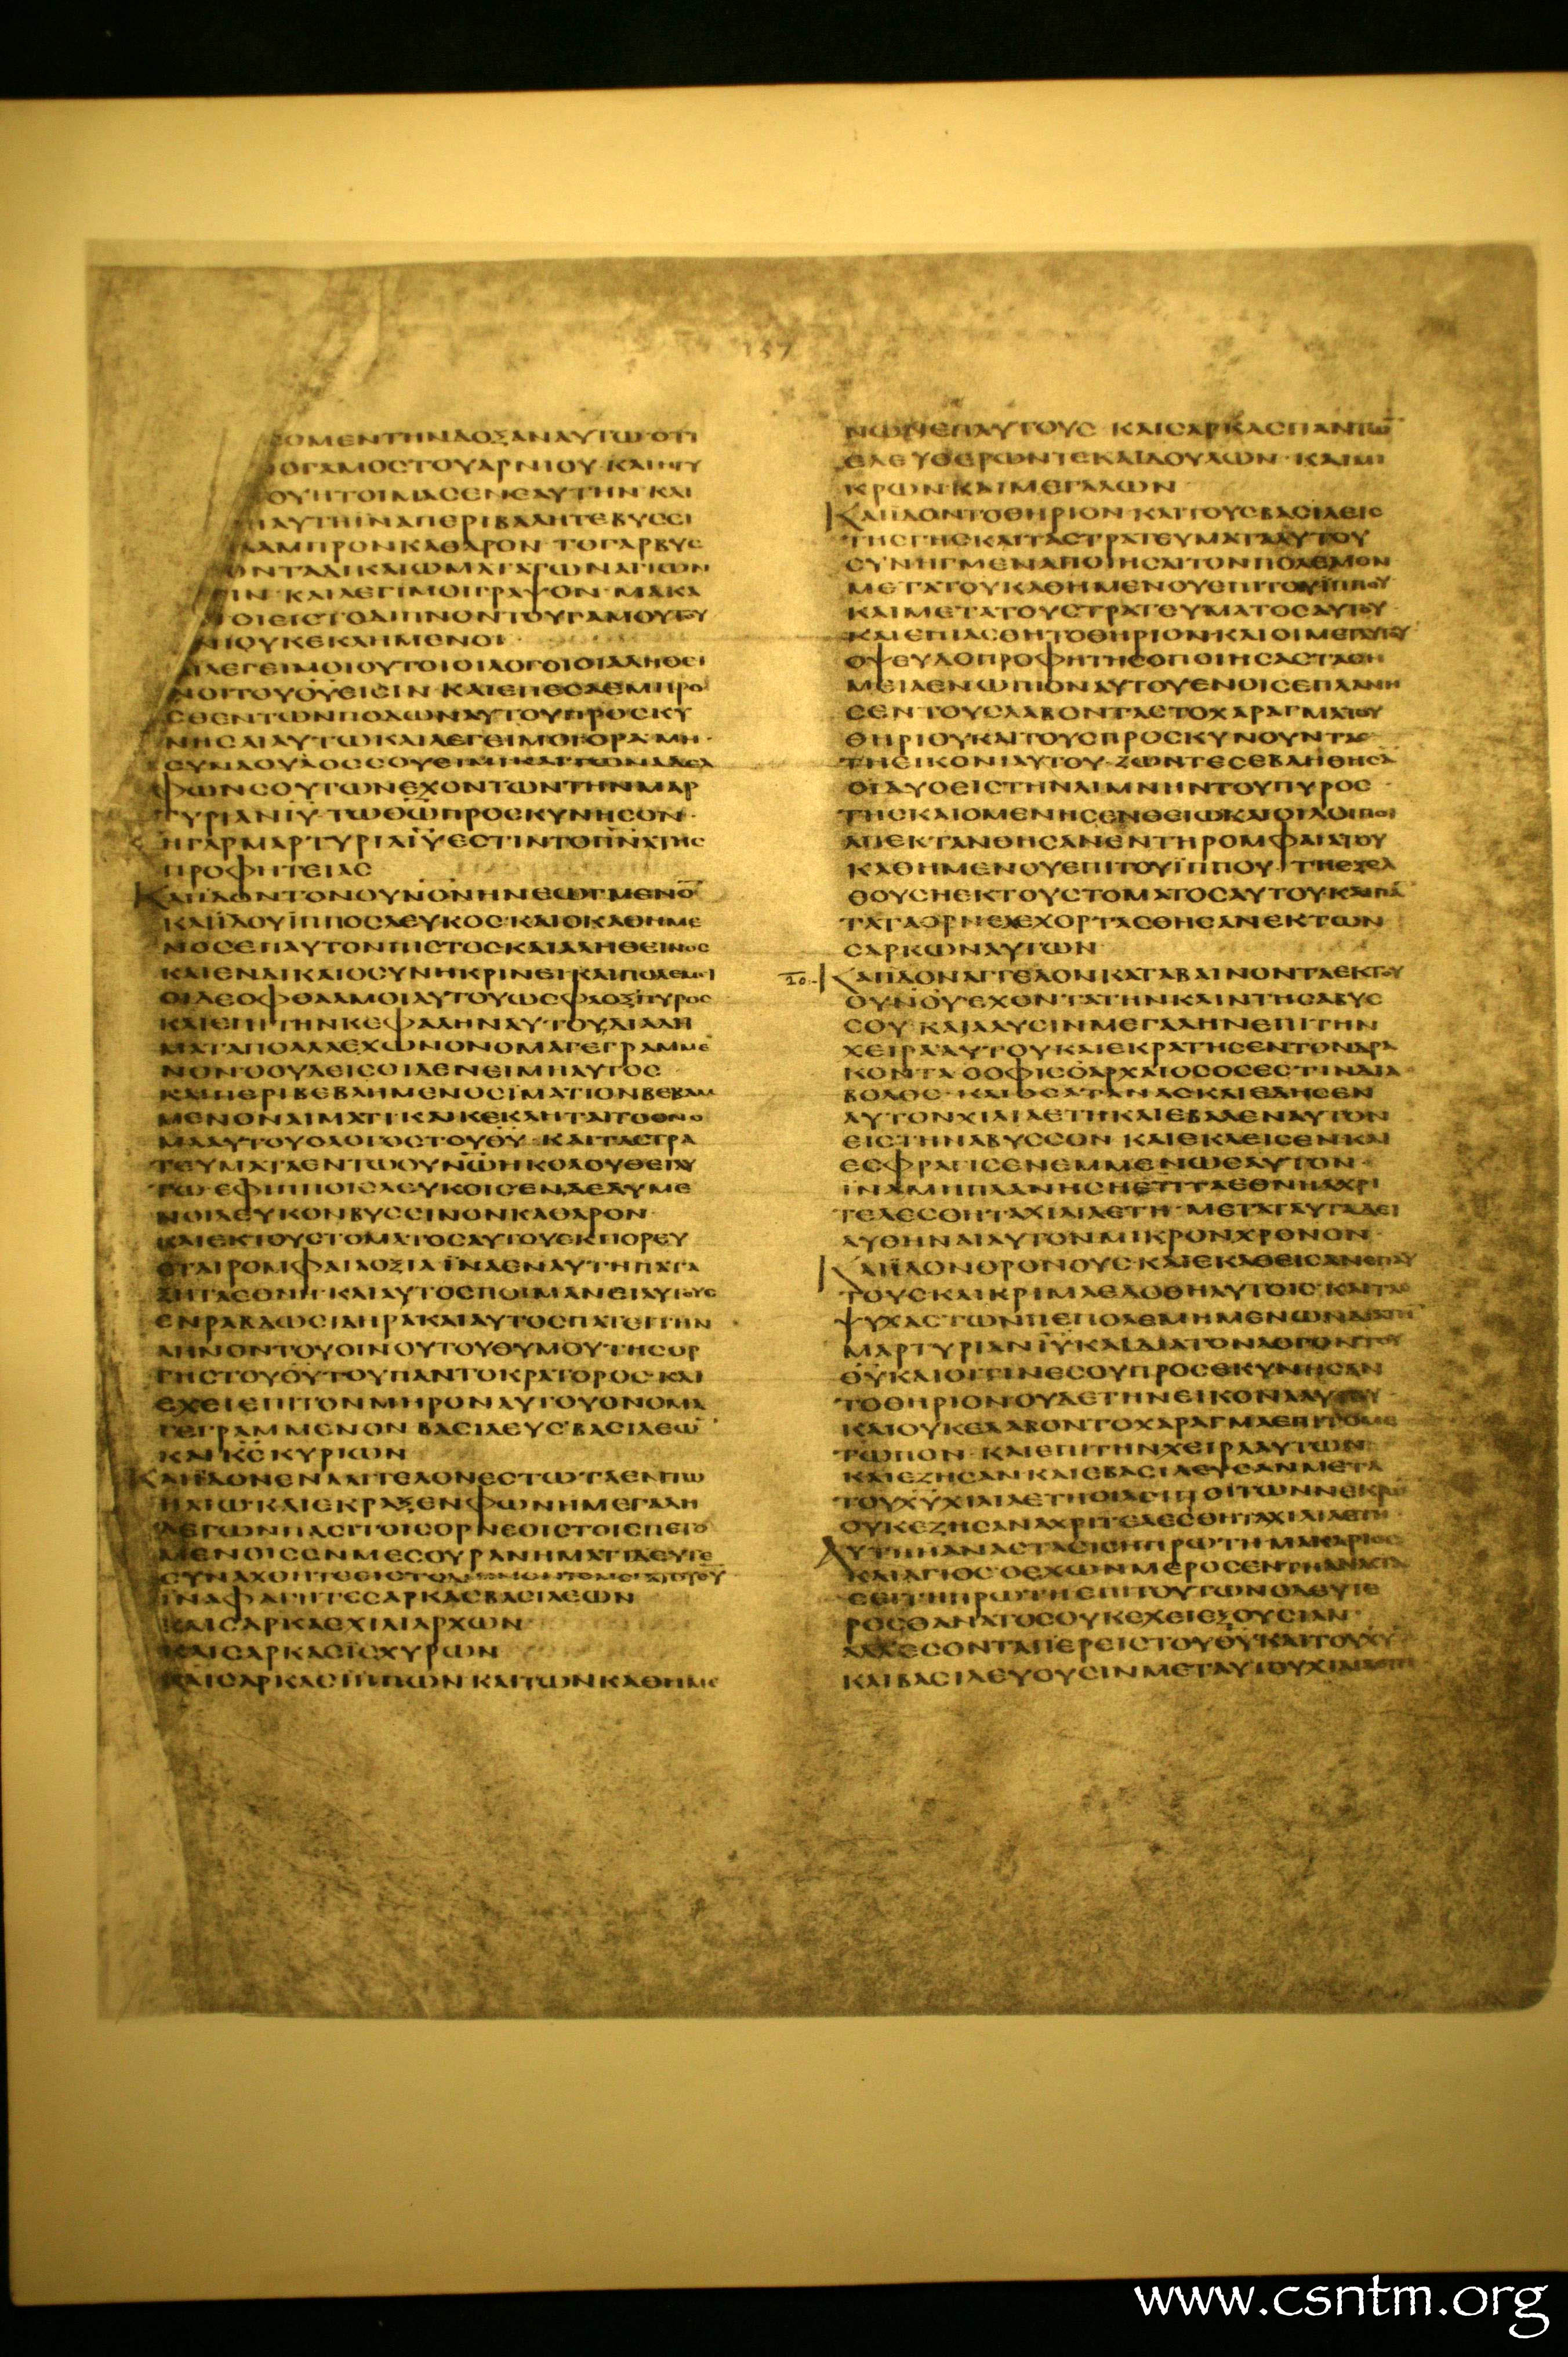 157
ΟΜΕΝΤΗΝΔΟΞΑΝΑΥΤΩΟΤΙ
ΟΓΑΜΟΣΤΟΥΑΡΝΙΟΥ ΚΑΙΗΓΥ
ΟΥΗΤΟΙΜΑϹΕΝΕΑΥΤΗΝ ΚΑΙ
ΑΥΤΗΙΝΑΠΕΡΙΒΑΛΗΤΕΒΥϹϹΙ
ΛΑΜΠΡΟΝΚΑΘΑΡΟΝ ΤΟΓΑΡΒΥϹ
ΔΙΚΑΙΩΜΑΤΑΤΩΝΑΓΙΩΝ
ΙΝ ΚΑΙΛΕΓΙΜΟΙΓΡΑΨΟΝ ΜΑΚΑ
ΟΙΕΙϹΤΟΔΙΠΝΟΝΤΟΥΓΑΜΟΥΤΟΥ
ΝΙΟΥΚΕΚΛΗΜΕΝΟΙ
ΛΕΓΕΙΜΟΙΟΥΤΟΙΟΙΛΟΓΟΙΟΙΑΛΗΘΕΙ
ΝΟΙΤΟΥΘΥΕΙϹΙΝ ΚΑΙΕΠΕϹΑΕΜΠΡΟ
ϹΘΕΝΤΩΝΠΟΔΩΝΑΥΤΟΥΠΡΟϹΚΥ
ΝΗϹΑΙΑΥΤΩΚΑΙΛΕΓΕΙΜΟΙΟΡΑΜΗ
ϹΥΝΔΟΥΛΟϹϹΟΥΕΙΜΙΚΑΙΤΩΝΑΔΕΛ
ΦΩΝϹΟΥΤΩΝΕΧΟΝΤΩΝΤΗΝΜΑΡ
ΤΥΡΙΑΝΙΥ ΤΩΘΩΠΡΟϹΚΥΝΗϹΟΝ
ΗΓΑΡΜΑΡΤΥΡΙΑΙΥΕϹΤΙΝΤΟΠΝΑΤΗϹ
ΠΡΟΦΗΤΕΙΑϹ
ΚΑΙΙΔΟΝΤΟΝΟΥΝΟΝΗΝΕΩΓΜΕΝΟ
ΚΑΙΙΔΟΥΙΠΠΟϹΛΕΥΚΟϹ ΚΑΙΟΚΑΘΗΜΕ
ΝΟϹΕΠΑΥΤΟΝΠΙϹΤΟϹΚΑΙΑΛΗΘΕΙΝΟϹ
ΚΑΙΕΝΔΙΚΑΙΟϹΥΝΗΚΡΙΝΕΙ ΚΑΙΠΟΛΕΜΕΙ
ΟΙΔΕΟΦΘΑΛΜΟΙΑΥΤΟΥΩϹΦΛΟΞΠΥΡΟϹ
ΚΑΙΕΠΙΤΗΝΚΕΦΑΛΗΝΑΥΤΟΥΔΙΑΔΗ
ΜΑΤΑΠΟΛΛΑΕΧΩΝΟΝΟΜΑΓΕΓΡΑΜΜΕ
ΝΟΝΟΟΥΔΕΙϹΟΙΔΕΝΕΙΜΗΑΥΤΟϹ
ΚΑΙΠΕΡΙΒΕΒΛΗΜΕΝΟϹΙΜΑΤΙΟΝΒΕΒΑΜ
ΜΕΝΟΝΑΙΜΑΤΙ ΚΑΙΚΕΚΛΗΤΑΙΤΟΟΝΟ
ΜΑΑΥΤΟΥΟΛΟΓΟϹΤΟΥΘΥ ΚΑΙΤΑϹΤΡΑ
ΤΕΥΜΑΤΑΕΝΤΩΟΥΝΩΗΚΟΛΟΥΘΕΙΑΥ
ΤΩ ΕΦΙΠΠΟΙϹΛΕΥΚΟΙϹΕΝΔΕΔΥΜΕ
ΝΟΙΛΕΥΚΟΝΒΥϹϹΙΝΟΝΚΑΘΑΡΟΝ
ΚΑΙΕΚΤΟΥϹΤΟΜΑΤΟϹΑΥΤΟΥΕΚΠΟΡΕΥ
ΕΤΑΙΡΟΜΦΑΙΑΟΞΙΑ ΙΝΑΕΝΑΥΤΗΠΑΤΑ
ΚΑΙΑΥΤΟϹΠΟΙΜΑΝΕΙΑΥΤΟΥϹ
ΕΝΡΑΒΔΩϹΙΔΗΡΑΚΑΙΑΥΤΟϹΠΑΤΕΙΤΗΝ
ΛΗΝΟΝΤΟΥΟΙΝΟΥΤΟΥΘΥΜΟΥΤΗϹΟΡ
ΓΗϹΤΟΥΘΥΤΟΥΠΑΝΤΟΚΡΑΤΟΡΟϹ ΚΑΙ
ΕΧΕΙΕΠΙΤΟΝΜΗΡΟΝΑΥΤΟΥΟΝΟΜΑ
ΓΕΓΡΑΜΜΕΝΟΝ ΒΑϹΙΛΕΥϹΒΑϹΙΛΕΩ
ΚΑΙΚϹΚΥΡΙΩΝ
ΚΑΙΙΔΟΝΕΝΑΑΓΓΕΛΟΝΕϹΤΩΤΑΕΝΤΩ
ΗΛΙΩ ΚΑΙΕΚΡΑΞΕΝΦΩΝΗΜΕΓΑΛΗ
ΛΕΓΩΝΠΑϹΙΤΟΙϹΟΡΝΕΟΙϹΤΟΙϹΠΕΤΟ
ΜΕΝΟΙϹΕΝΜΕϹΟΥΡΑΝΗΜΑΤΙΔΕΥΤΕ
ΙΝΑΦΑΓΗΤΕϹΑΡΚΑϹΒΑϹΙΛΕΩΝ
ΚΑΙϹΑΡΚΑϹΧΙΛΙΑΡΧΩΝ
ΚΑΙϹΑΡΚΑϹΙϹΧΥΡΩΝ
ΚΑΙϹΑΡΚΑϹΙΠΠΩΝ ΚΑΙΤΩΝΚΑΘΗΜΕ
ΝΩΝΕΠΑΥΤΟΥϹ ΚΑΙϹΑΡΚΑϹΠΑΝΤΩ
ΕΛΕΥΘΕΡΩΝΤΕΚΑΙΔΟΥΛΩΝ ΚΑΙΜΙ
ΚΡΩΝ ΚΑΙΜΕΓΑΛΩΝ
ΚΑΙΙΔΟΝΤΟΘΗΡΙΟΝ ΚΑΙΤΟΥϹΒΑϹΙΛΕΙϹ
ΤΗϹΓΗϹΚΑΙΤΑϹΤΡΑΤΕΥΜΑΤΑΑΥΤΟΥ
ϹΥΝΗΓΜΕΝΑΠΟΙΗϹΑΙΤΟΝΠΟΛΕΜΟΝ
ΜΕΤΑΤΟΥΚΑΘΗΜΕΝΟΥΕΠΙΤΟΥΙΠΠΟΥ
ΚΑΙΜΕΤΑΤΟΥϹΤΡΑΤΕΥΜΑΤΟϹΑΥΤΟΥ
ΚΑΙΕΠΙΑϹΘΗΤΟΘΗΡΙΟΝΚΑΙΟΙΜΕΤΑΥΤΟΥ
ΟΨΕΥΔΟΠΡΟΦΗΤΗϹΟΠΟΙΗϹΑϹΤΑϹΗ
ΜΕΙΑΕΝΩΠΙΟΝΑΥΤΟΥΕΝΟΙϹΕΠΛΑΝΗ
ϹΕΝΤΟΥϹΛΑΒΟΝΤΑϹΤΟΧΑΡΑΓΜΑΤΟΥ
ΘΗΡΙΟΥΚΑΙΤΟΥϹΠΡΟϹΚΥΝΟΥΝΤΑϹ
ΤΗΕΙΚΟΝΙΑΥΤΟΥ ΖΩΝΤΕϹΕΒΛΗΘΗϹΑ
ΟΙΔΥΟΕΙϹΤΗΝΛΙΜΝΗΝΤΟΥΠΥΡΟϹ
ΤΗϹΚΑΙΟΜΕΝΗϹΕΝΘΕΙΩΚΑΙΟΙΛΟΙΠΟΙ
ΑΠΕΚΤΑΝΘΗϹΑΝΕΝΤΗΡΟΜΦΑΙΑΤΟΥ
ΚΑΘΗΜΕΝΟΥΕΠΙΤΟΥΙΠΠΟΥ ΤΗΕΞΕΛ
ΘΟΥϹΗΕΚΤΟΥϹΤΟΜΑΤΟϹΑΥΤΟΥΚΑΙΠΑ
ΤΑΤΑΟΡΝΕΑΕΧΟΡΤΑϹΘΗϹΑΝΕΚΤΩΝ
ϹΑΡΚΩΝΑΥΤΩΝ
20 ΚΑΙΙΔΟΝΑΓΓΕΛΟΝΚΑΤΑΒΑΙΝΟΝΤΑΕΚΤΟΥ
ΟΥΝΟΥΕΧΟΝΤΑΤΗΝΚΛΙΝΤΗϹΑΒΥϹ
ϹΟΥ ΚΑΙΑΛΥϹΙΝΜΕΓΑΛΗΝΕΠΙΤΗΝ
ΧΕΙΡΑΑΥΤΟΥΚΑΙΕΚΡΑΤΗϹΕΝΤΟΝΔΡΑ
ΚΟΝΤΑ ΟΟΦΙϹΟΑΡΧΑΙΟϹΟϹΕϹΤΙΝΔΙΑ
ΒΟΛΟϹ ΚΑΙΟϹΑΤΑΝΑϹΚΑΙΕΔΗϹΕΝ
ΑΥΤΟΝΧΙΛΙΑΕΤΗΚΑΙΕΒΑΛΕΝΑΥΤΟΝ
ΕΙϹΤΗΝΑΒΥϹϹΟΝ ΚΑΙΕΚΛΕΙϹΕΝΚΑΙ
ΕϹΦΡΑΓΙϹΕΝΕΜΜΕΝΩϹΑΥΤΟΝ
ΙΝΑΜΗΠΛΑΝΗϹΗΕΤΙΤΑΕΘΝΗΑΧΡΙ
ΤΕΛΕϹΘΗΤΑΧΙΛΙΑΕΤΗ ΜΕΤΑΤΑΥΤΑΔΕΙ
ΛΥΘΗΝΑΙΑΥΤΟΝΜΙΚΡΟΝΧΡΟΝΟΝ
ΚΑΙΙΔΟΝΘΡΟΝΟΥϹ ΚΑΙΕΚΑΘΕΙϹΑΝΕΠΑΥ
ΤΟΥϹΚΑΙΚΡΙΜΑΕΔΟΘΗΑΥΤΟΙϹ ΚΑΙΤΑϹ
ΨΥΧΑϹΤΩΝΠΕΠΟΛΕΜΗΜΕΝΩΝ
ΜΑΡΤΥΡΙΑΝΙΥΚΑΙΔΙΑΤΟΝΛΟΓΟΝΤΟΥ
ΘΥΚΑΙΟΙΤΙΝΕϹΟΥΠΡΟϹΕΚΥΝΗϹΑΝ
ΤΟΘΗΡΙΟΝΟΥΔΕΤΗΝΕΙΚΟΝΑΑΥΤΟΥ
ΚΑΙΟΥΚΕΛΑΒΟΝΤΟΧΑΡΑΓΜΑΕΠΙΤΟΜΕ
ΤΩΠΟΝ ΚΑΙΕΠΙΤΗΝΧΕΙΡΑΑΥΤΩΝ
ΚΑΙΕΖΗϹΑΝ ΚΑΙΕΒΑϹΙΛΕΥϹΑΝΜΕΤΑ
ΤΟΥΧΥΧΙΛΙΑΕΤΗΟΙΛΟΙΠΟΙΤΩΝΝΕΚΡΩ
ΟΥΚΕΖΗϹΑΝΑΧΡΙΤΕΛΕϹΘΗΤΑΧΙΛΙΑΕΤΗ
ΑΥΤΗΗΑΝΑϹΤΑϹΙϹΗΠΡΩΤΗΜΑΚΑΡΙΟϹ
ΚΑΙΑΓΙΟϹΟΕΧΩΝΜΕΡΟϹΕΝΤΗΑΝΑϹΤΑ
ϹΕΙΤΗΠΡΩΤΗΕΠΙΤΟΥΤΩΝΟΔΕΥΤΕ
ΡΟϹΘΑΝΑΤΟϹΟΥΚΕΧΕΙΕΞΟΥϹΙΑΝ
ΑΛΛΕϹΟΝΤΑΙΙΕΡΕΙϹΤΟΥΘΥΚΑΙΤΟΥΧΥ
ΚΑΙΒΑϹΙΛΕΥΟΥϹΙΝΜΕΤΑΥΤΟΥΧΙΛΙΑΕΤΗ
www.csntm.org